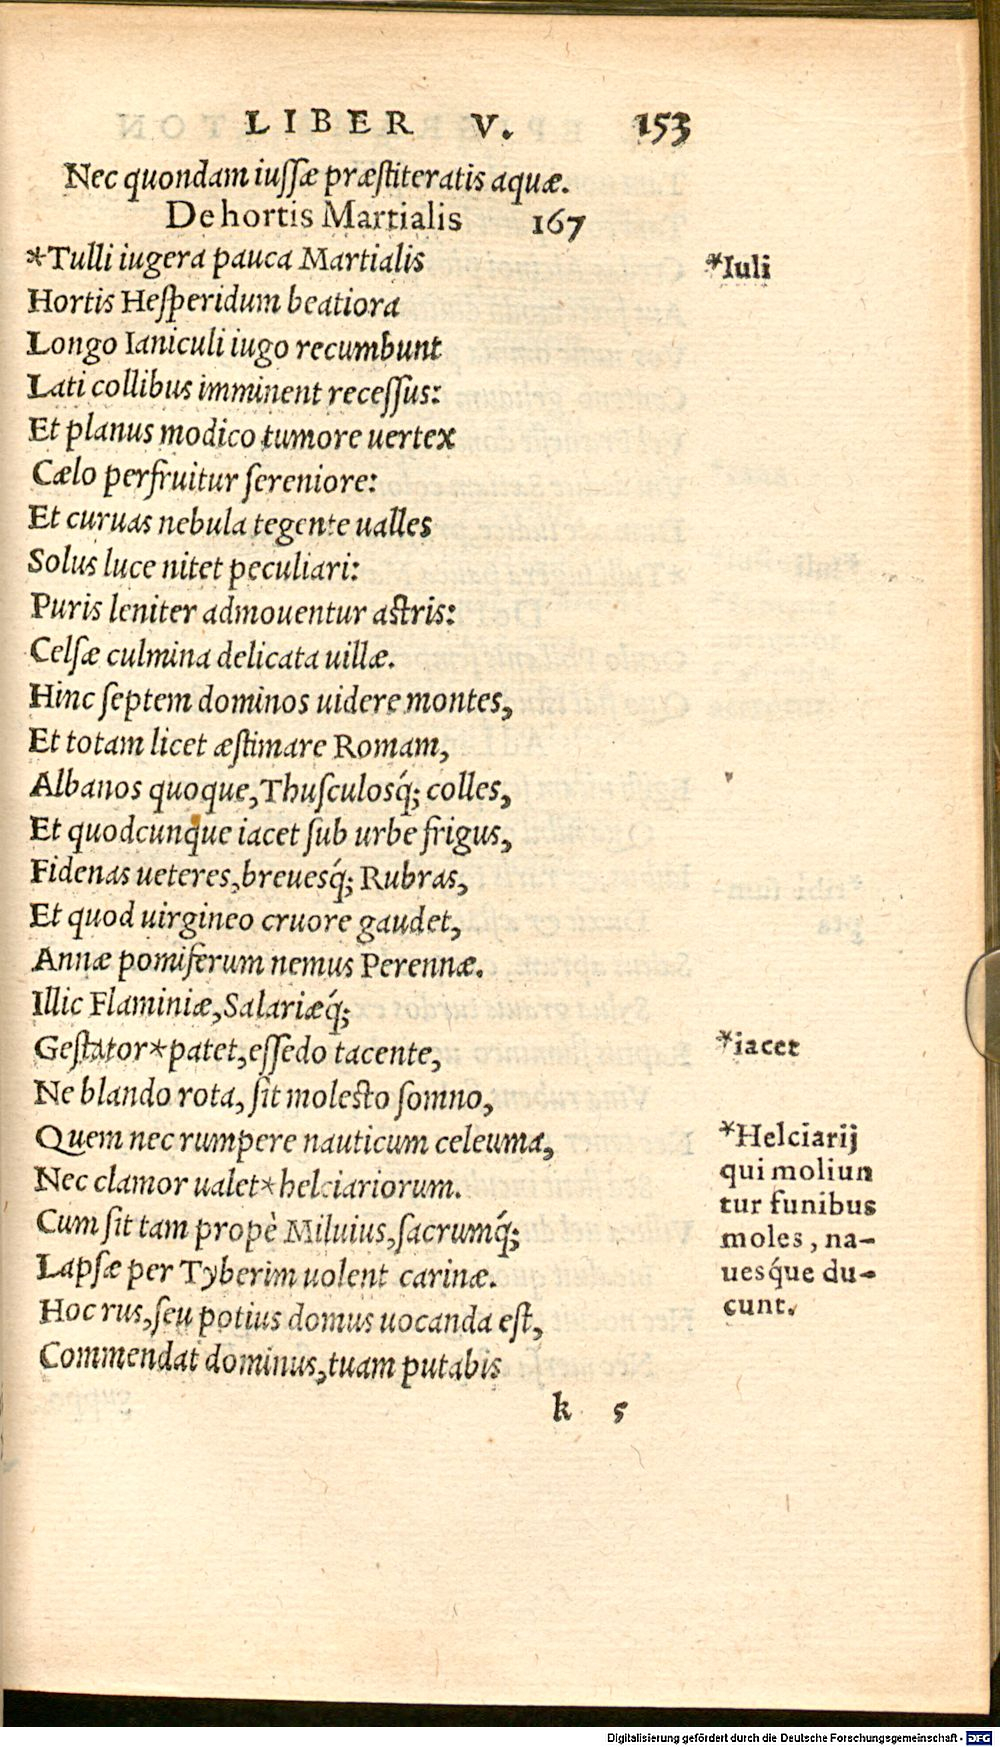 LIBER V. 153
Nec quondam iuſſæ præſtiteratis aquæ.
De hortis Martialis 167
*Tulli iugera pauca Martialis
*Iuli
Hortis Heſperidum beatiora
Longo Ianiculi iugo recumbunt
Lati collibus imminent receſſus:
Et planus modico tumore uertex
Cælo perfruitur ſereniore:
Et curuas nebula tegente ualles
Solus luce nitet peculiari:
Puris leniter admouentur aſtris:
Celſæ culmina delicata uillæ.
Hinc ſeptem dominos uidere montes,
Et totam licet æſtimare Romam,
Albanos quoque, Thuſculosq́; colles,
Et quodcunque iacet ſub urbe frigus,
Fidenas ueteres, breuesq́; Rubras,
Et quod uirgineo cruore gaudet,
Annæ pomiferum nemus Perennæ.
Illic Flaminiæ, Salariæq́;
Geſtator*patet, eſſedo tacente,
*iacet
Ne blando rota, ſit moleſto ſomno,
Quem nec rumpere nauticum celeuma,
Nec clamor ualet*helciariorum.
*Helciarij
qui moliun
tur funibus
moles, na-
uesq́ue du-
cunt.
Cum ſit tam propè Miluius, ſacrumq́;
Lapſæ per Tyberim uolent carinæ.
Hoc rus, ſeu potius domus uocanda eſt,
Commendat dominus, tuam putabis
k 5
Digitalisierung gefördert durch die Deutsche Forschungsgemeinschaft - DFG